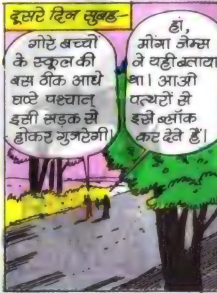 दूसरे दिन सुबह-
गोरे बच्चों
के स्कूल की
बस ठीक आधे
घण्टे पश्चात्
इसी सड़क से
होकर गुजरेगी।
हां,
मोंगा जेम्स
ने यही बताया
था। आओ
पत्थरों से
इसे ब्लॉक
कर देते हैं।